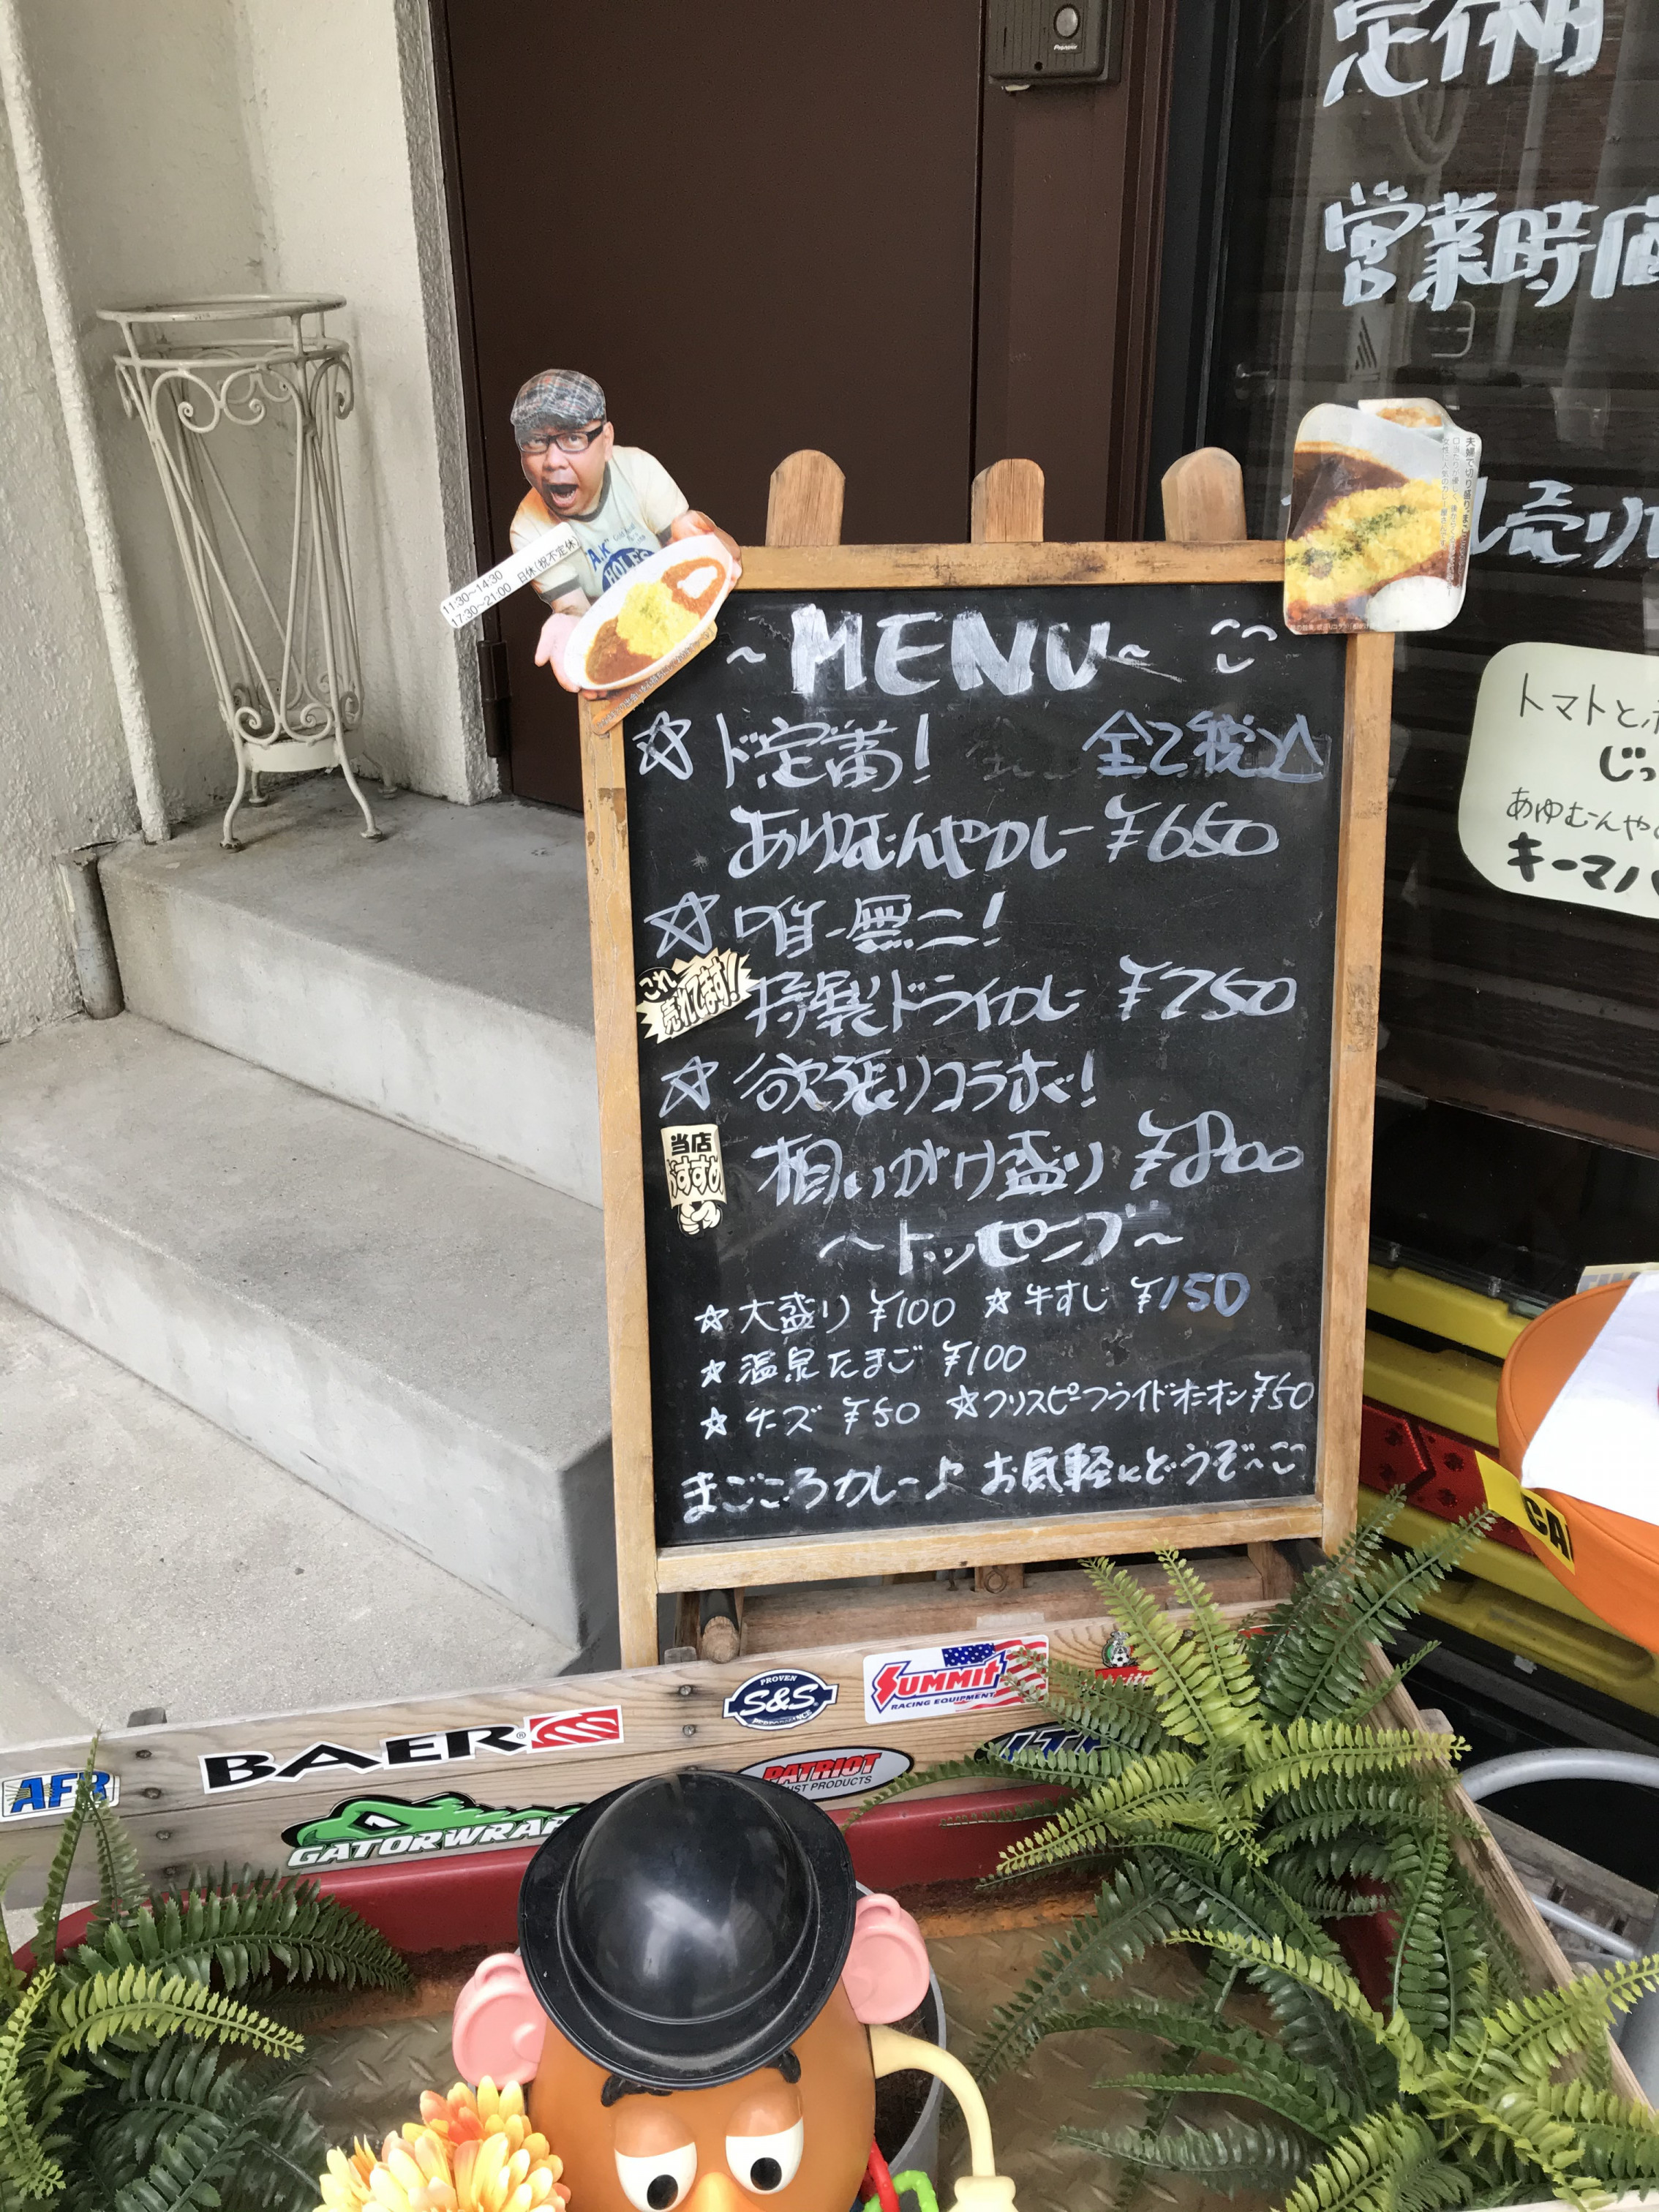 定休
営業時
売り
11:30~14:30
17:30~21:00 日休(祝不定休)
HOLES
~MENU~
☆ド定番! 全て税込
あゆむんやカレー ¥650
☆唯一無二!
これ売れてます!!
特製ドライカレー ¥750
☆欲張りコラボ!
当店おすすめ
相いがけ盛り ¥800
~トッピング~
☆大盛り ¥100 ☆牛すじ ¥150
☆温泉たまご ¥100
☆チーズ ¥50 ☆クリスピーフライドオニオン ¥50
まごころカレー♪ お気軽にどうぞ~
トマトと
じっ
あゆむんやの
キーマ
CA
PROVEN
S&S
PERFORMANCE
SUMMIT
RACING EQUIPMENT
BAER®
AFR
PATRIOT
EXHAUST PRODUCTS
GATORWRAP